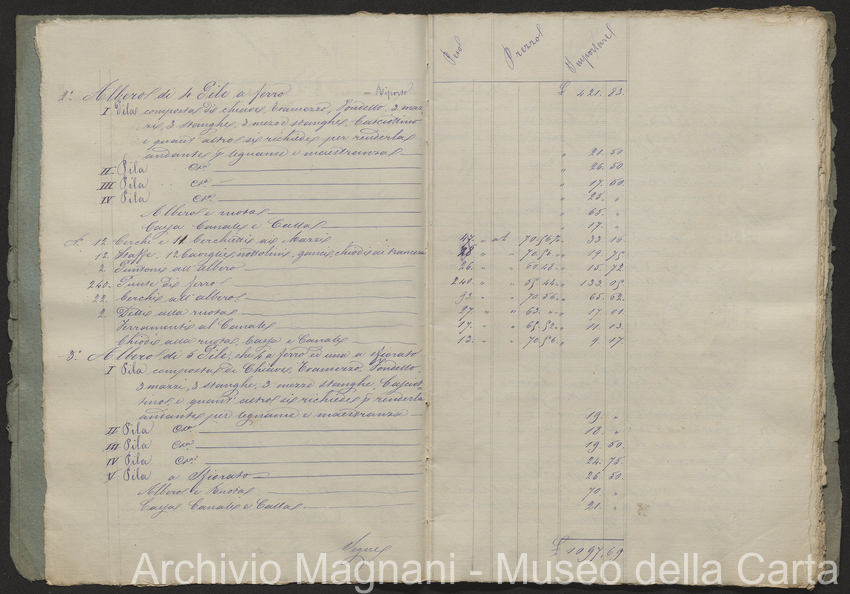 Pesol Prezzol Importarel
2.° Albero di 4 Pile a ferro - Riporto £ 421.83.
I Pila composta di chiave, Tramezzo, Fondello, 3 maz-
zi, 3 stanghe, 3 mezze stanghe, Casciottino
e quant'altro si richiede per renderla
andante p legname e maestranza „ 21.50
II Pila Cra „ 26.50
III Pila Cra „ 17.50
IV Pila Cra „ 25. „
Albero e ruota „ 65. „
Cassa Canale e Callas „ 17. „
N. 12 Cerchi e 11 Cerchietti ai Mazzi 47. „ at 70.56 „ 33 16
12 Staffe, 12 Caviglie, nottolini, ganci, chiodi ai tramezzi 28 „ „ 70.56 „ 19.75
2 Puntoni all'albero 26. „ „ 60.46. „ 15.72
240. Punte di ferro 240 „ „ 55.44. „ 133 05
22. Cerchi all'albero 93. „ „ 70.56. „ 65.62
2 Detti alla ruota 27. „ „ 63. „ „ 17 01
Ferramenti al Canale 17. „ „ 65.52 „ 11.13
Chiodi alla ruota, Cassa e Canale 13. „ „ 70.56 „ 9 17
3.° Albero di 5 Pile, che 4 a ferro ed una a sfiorato
I Pila composta di Chiave, Tramezzo, Fondello,
3 mazzi, 3 stanghe, 3 mezze stanghe, Casciot-
tino, e quant'altro si richiede p renderla
andante per legname e maestranza 19 „
II Pila Cra 18 „
III Pila Cra 19 50
IV Pila Cra 24.75
V Pila a Sfiorato 26.50.
Albero e Ruota 70. „
Cassa Canale e Callas 21. „
Segue £ 1097.69
Archivio Magnani - Museo della Carta